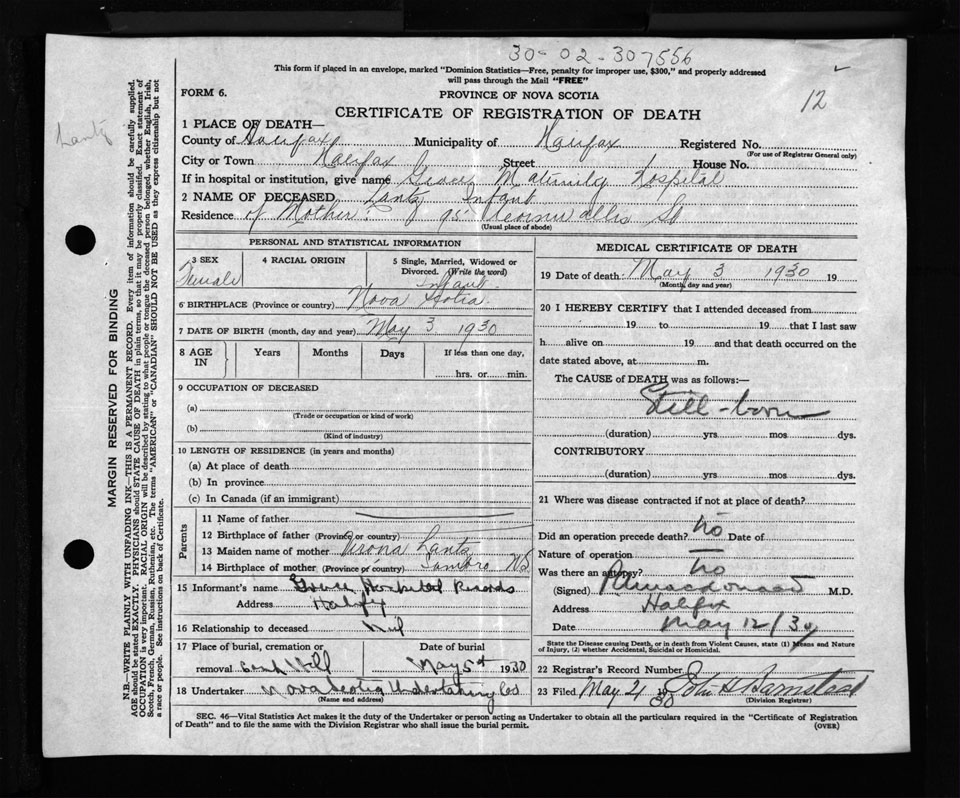 30-02-307556
This form if placed in an envelope, marked "Dominion Statistics—Free, penalty for improper use, $300," and properly addressed
will pass through the Mail "FREE"
12
FORM 6.
PROVINCE OF NOVA SCOTIA
CERTIFICATE OF REGISTRATION OF DEATH
Lantz
MARGIN RESERVED FOR BINDING
N.B.—WRITE PLAINLY WITH UNFADING INK—THIS IS A PERMANENT RECORD. Every item of information should be carefully supplied.
AGE should be stated EXACTLY. PHYSICIANS should STATE CAUSE OF DEATH in plain terms, so that it may be properly classified. Exact statement of
OCCUPATION is very important. RACIAL ORIGIN will be described by stating to what people or tongue the deceased person belonged, whether English, Irish,
Scotch, French, German, Russian, Ruthenian, etc. The terms "AMERICAN" or "CANADIAN" SHOULD NOT BE USED as they express citizenship but not
a race or people. See instructions on back of Certificate.
1 PLACE OF DEATH—
County of Halifax Municipality of Halifax Registered No.
(For use of Registrar General only)
City or Town Halifax Street House No.
If in hospital or institution, give name Grace Maternity Hospital
2 NAME OF DECEASED Lantz Infant
Residence of Mother: 95 Cornwallis St
(Usual place of abode)
PERSONAL AND STATISTICAL INFORMATION
3 SEX 4 RACIAL ORIGIN 5 Single, Married, Widowed or
Divorced. (Write the word)
Female Infant
6 BIRTHPLACE (Province or country) Nova Scotia
7 DATE OF BIRTH (month, day and year) May 3 1930
8 AGE IN Years Months Days If less than one day,
hrs. or min.
9 OCCUPATION OF DECEASED
(a)
(Trade or occupation or kind of work)
(b)
(Kind of industry)
10 LENGTH OF RESIDENCE (in years and months)
(a) At place of death
(b) In province
(c) In Canada (if an immigrant)
Parents
11 Name of father
12 Birthplace of father (Province or country)
13 Maiden name of mother Lantz
14 Birthplace of mother (Province or country) Sambro N.S.
15 Informant's name Grace Hospital Records
Address Halifax
16 Relationship to deceased Nil
17 Place of burial, cremation or Date of burial
removal May 5th 1930
18 Undertaker Nova Scotia Undertaking Co
(Name and address)
MEDICAL CERTIFICATE OF DEATH
19 Date of death May 3 1930 19
(Month, day and year)
20 I HEREBY CERTIFY that I attended deceased from
19 to 19 that I last saw
h alive on 19 and that death occurred on the
date stated above, at m.
The CAUSE of DEATH was as follows:—
Still-born
(duration) yrs mos dys.
CONTRIBUTORY
(duration) yrs mos dys.
21 Where was disease contracted if not at place of death?
Did an operation precede death? no Date of
Nature of operation —
Was there an autopsy? no
(Signed) M.D.
Address Halifax
Date May 12/30
State the Disease causing Death, or in death from Violent Causes, state (1) Means and Nature
of Injury, (2) whether Accidental, Suicidal or Homicidal.
22 Registrar's Record Number
23 Filed May 21 1930 John H Barnstead
(Division Registrar)
SEC. 46—Vital Statistics Act makes it the duty of the Undertaker or person acting as Undertaker to obtain all the particulars required in the "Certificate of Registration
of Death" and to file the same with the Division Registrar who shall issue the burial permit. (OVER)